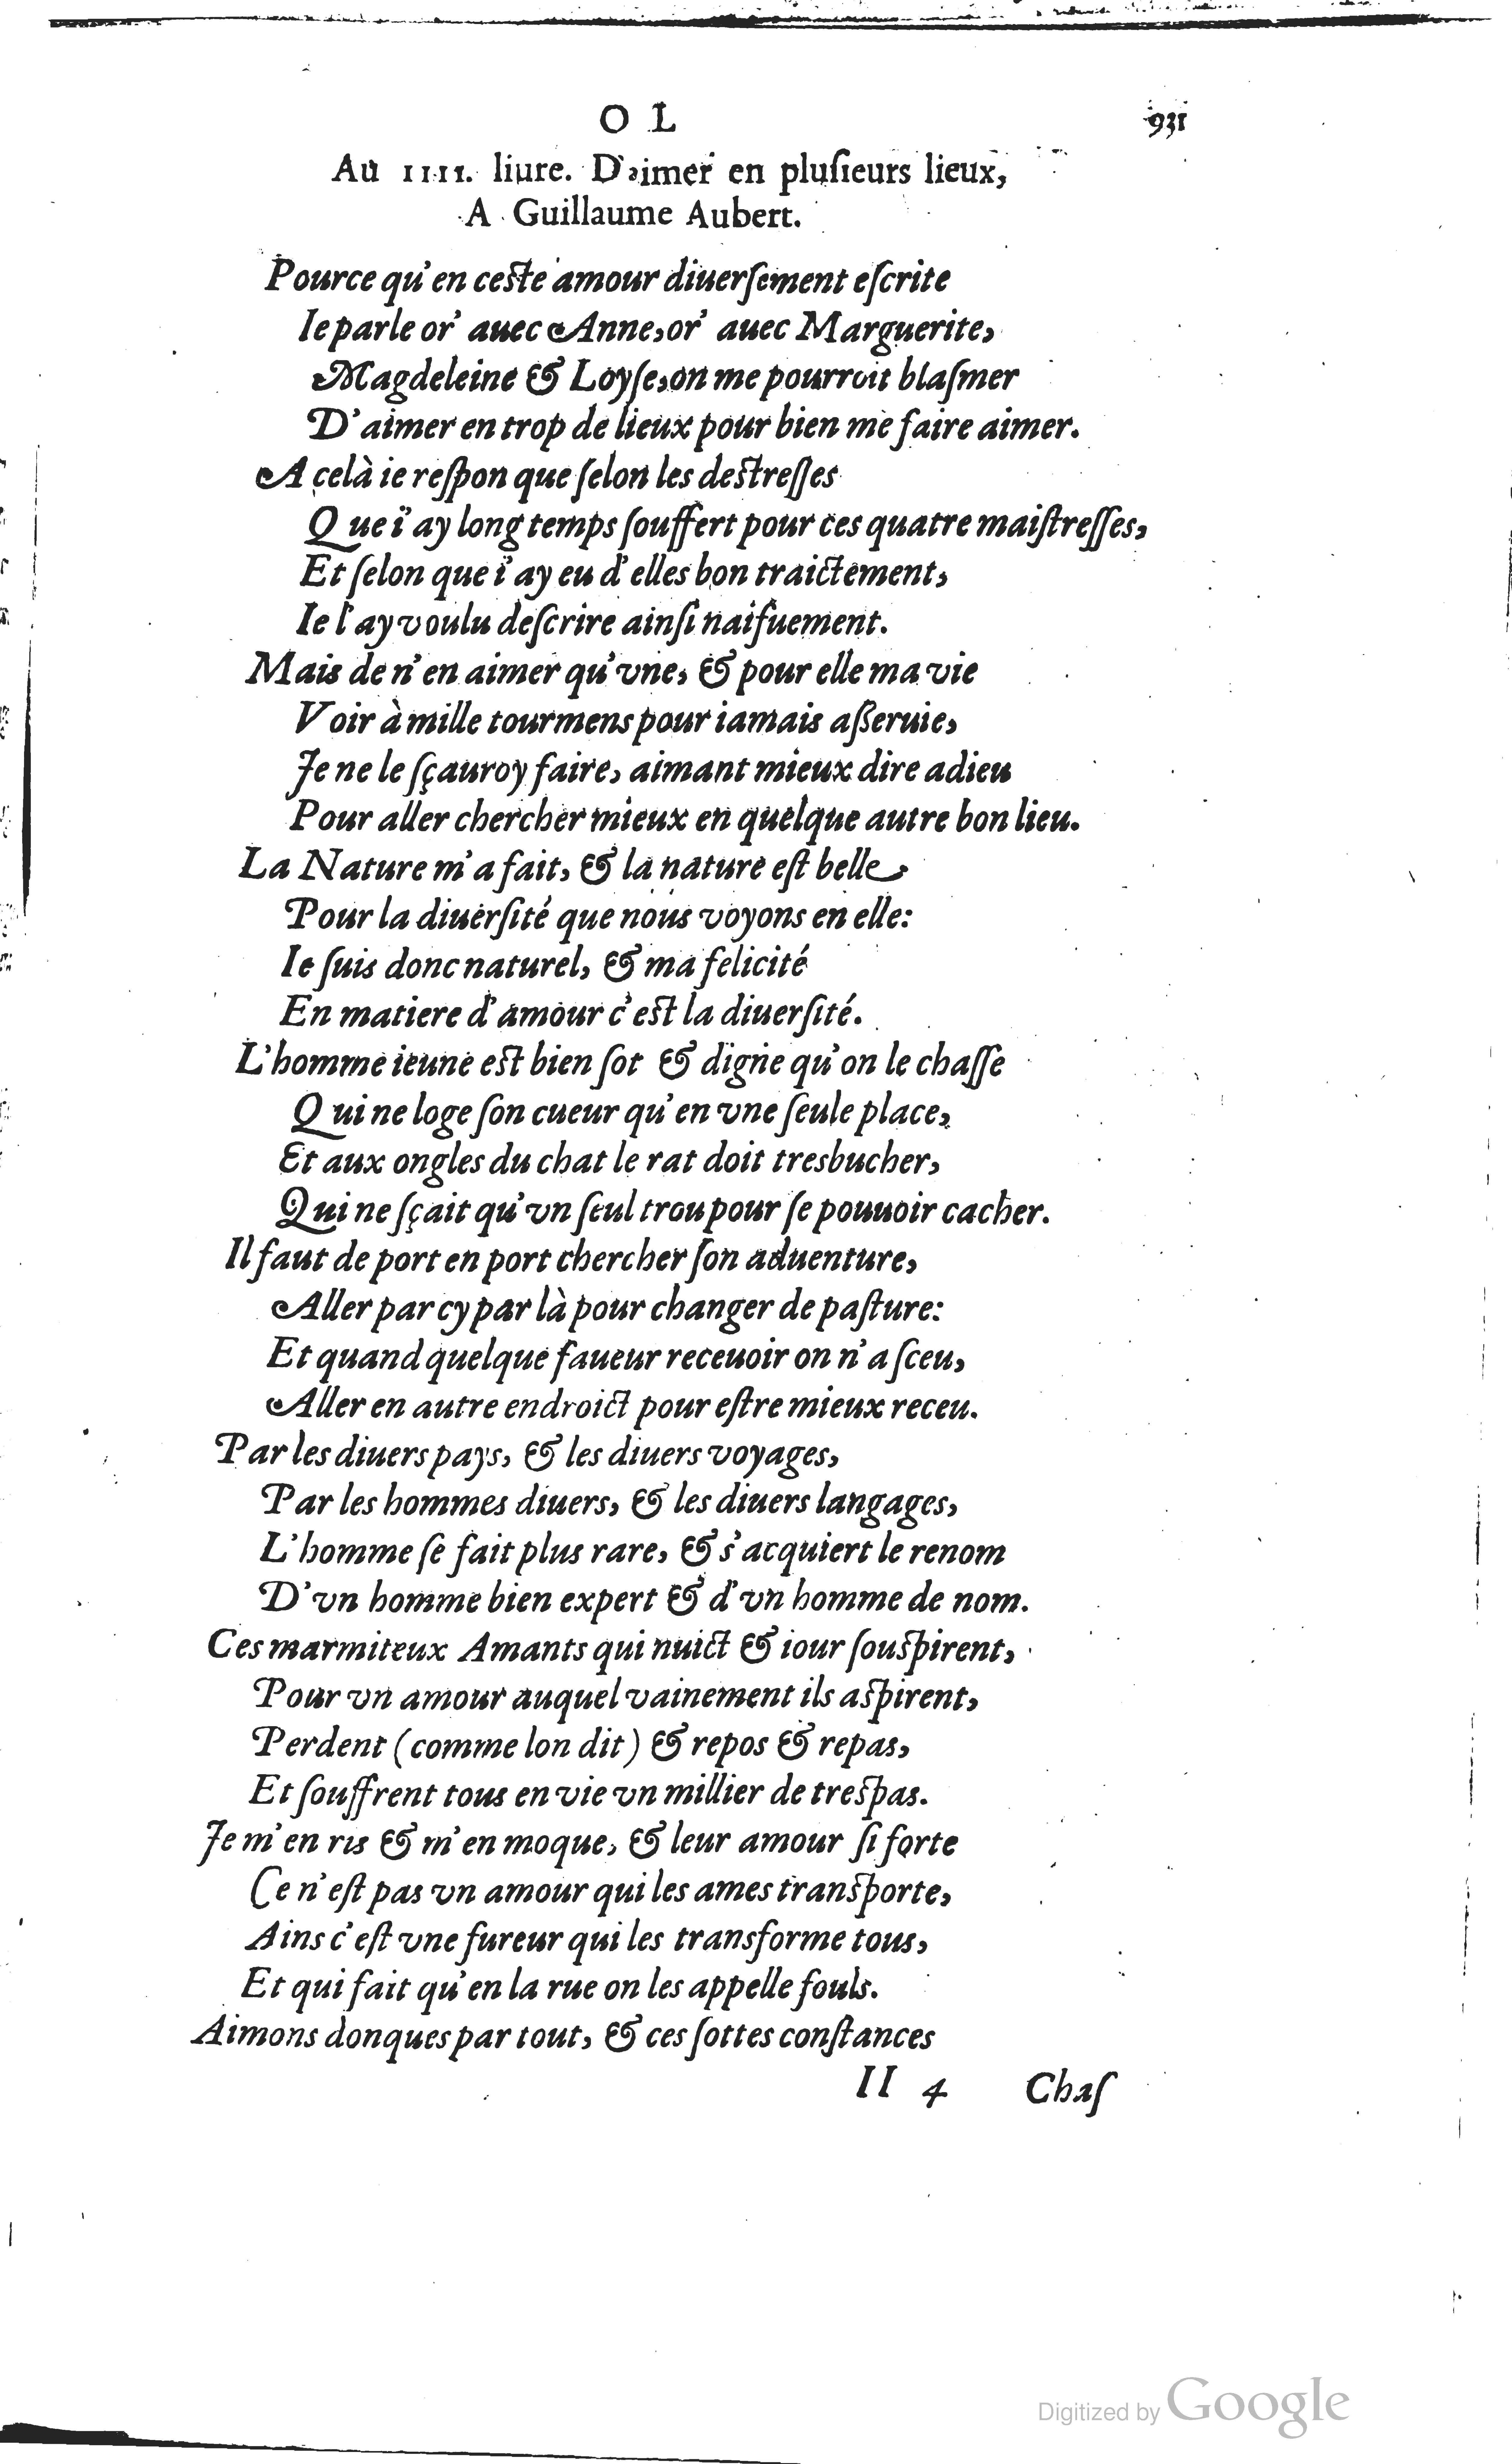 O L 931
Au IIII. liure. D'aimer en pluſieurs lieux,
A Guillaume Aubert.
Pource qu'en ceſte amour diuerſement eſcrite
Ie parle or' auec Anne, or' auec Marguerite,
Magdeleine & Loyſe, on me pourroit blaſmer
D'aimer en trop de lieux pour bien me faire aimer.
A celà ie reſpon que ſelon les deſtreſſes
Que i'ay long temps ſouffert pour ces quatre maiſtreſſes,
Et ſelon que i'ay eu d'elles bon traictement,
Ie l'ay voulu deſcrire ainſi naifuement.
Mais de n'en aimer qu'vne, & pour elle ma vie
Voir à mille tourmens pour iamais aſſeruie,
Je ne le ſçauroy faire, aimant mieux dire adieu
Pour aller chercher mieux en quelque autre bon lieu.
La Nature m'a fait, & la nature eſt belle
Pour la diuerſité que nous voyons en elle:
Ie ſuis donc naturel, & ma felicité
En matiere d'amour c'eſt la diuerſité.
L'homme ieune eſt bien ſot & digne qu'on le chaſſe
Qui ne loge ſon cueur qu'en vne ſeule place,
Et aux ongles du chat le rat doit tresbucher,
Qui ne ſçait qu'vn ſeul trou pour ſe pouuoir cacher.
Il faut de port en port chercher ſon aduenture,
Aller par cy par là pour changer de paſture:
Et quand quelque faueur receuoir on n'a ſceu,
Aller en autre endroict pour eſtre mieux receu.
Par les diuers pays, & les diuers voyages,
Par les hommes diuers, & les diuers langages,
L'homme ſe fait plus rare, & s'acquiert le renom
D'vn homme bien expert & d'vn homme de nom.
Ces marmiteux Amants qui nuict & iour ſouſpirent,
Pour vn amour auquel vainement ils aſpirent,
Perdent (comme lon dit) & repos & repas,
Et ſouffrent tous en vie vn millier de treſpas.
Je m'en ris & m'en moque, & leur amour ſi forte
Ce n'eſt pas vn amour qui les ames tranſporte,
Ains c'eſt vne fureur qui les transforme tous,
Et qui fait qu'en la rue on les appelle fouls.
Aimons donques par tout, & ces ſottes conſtances
II 4 Chaſ
Digitized by Google